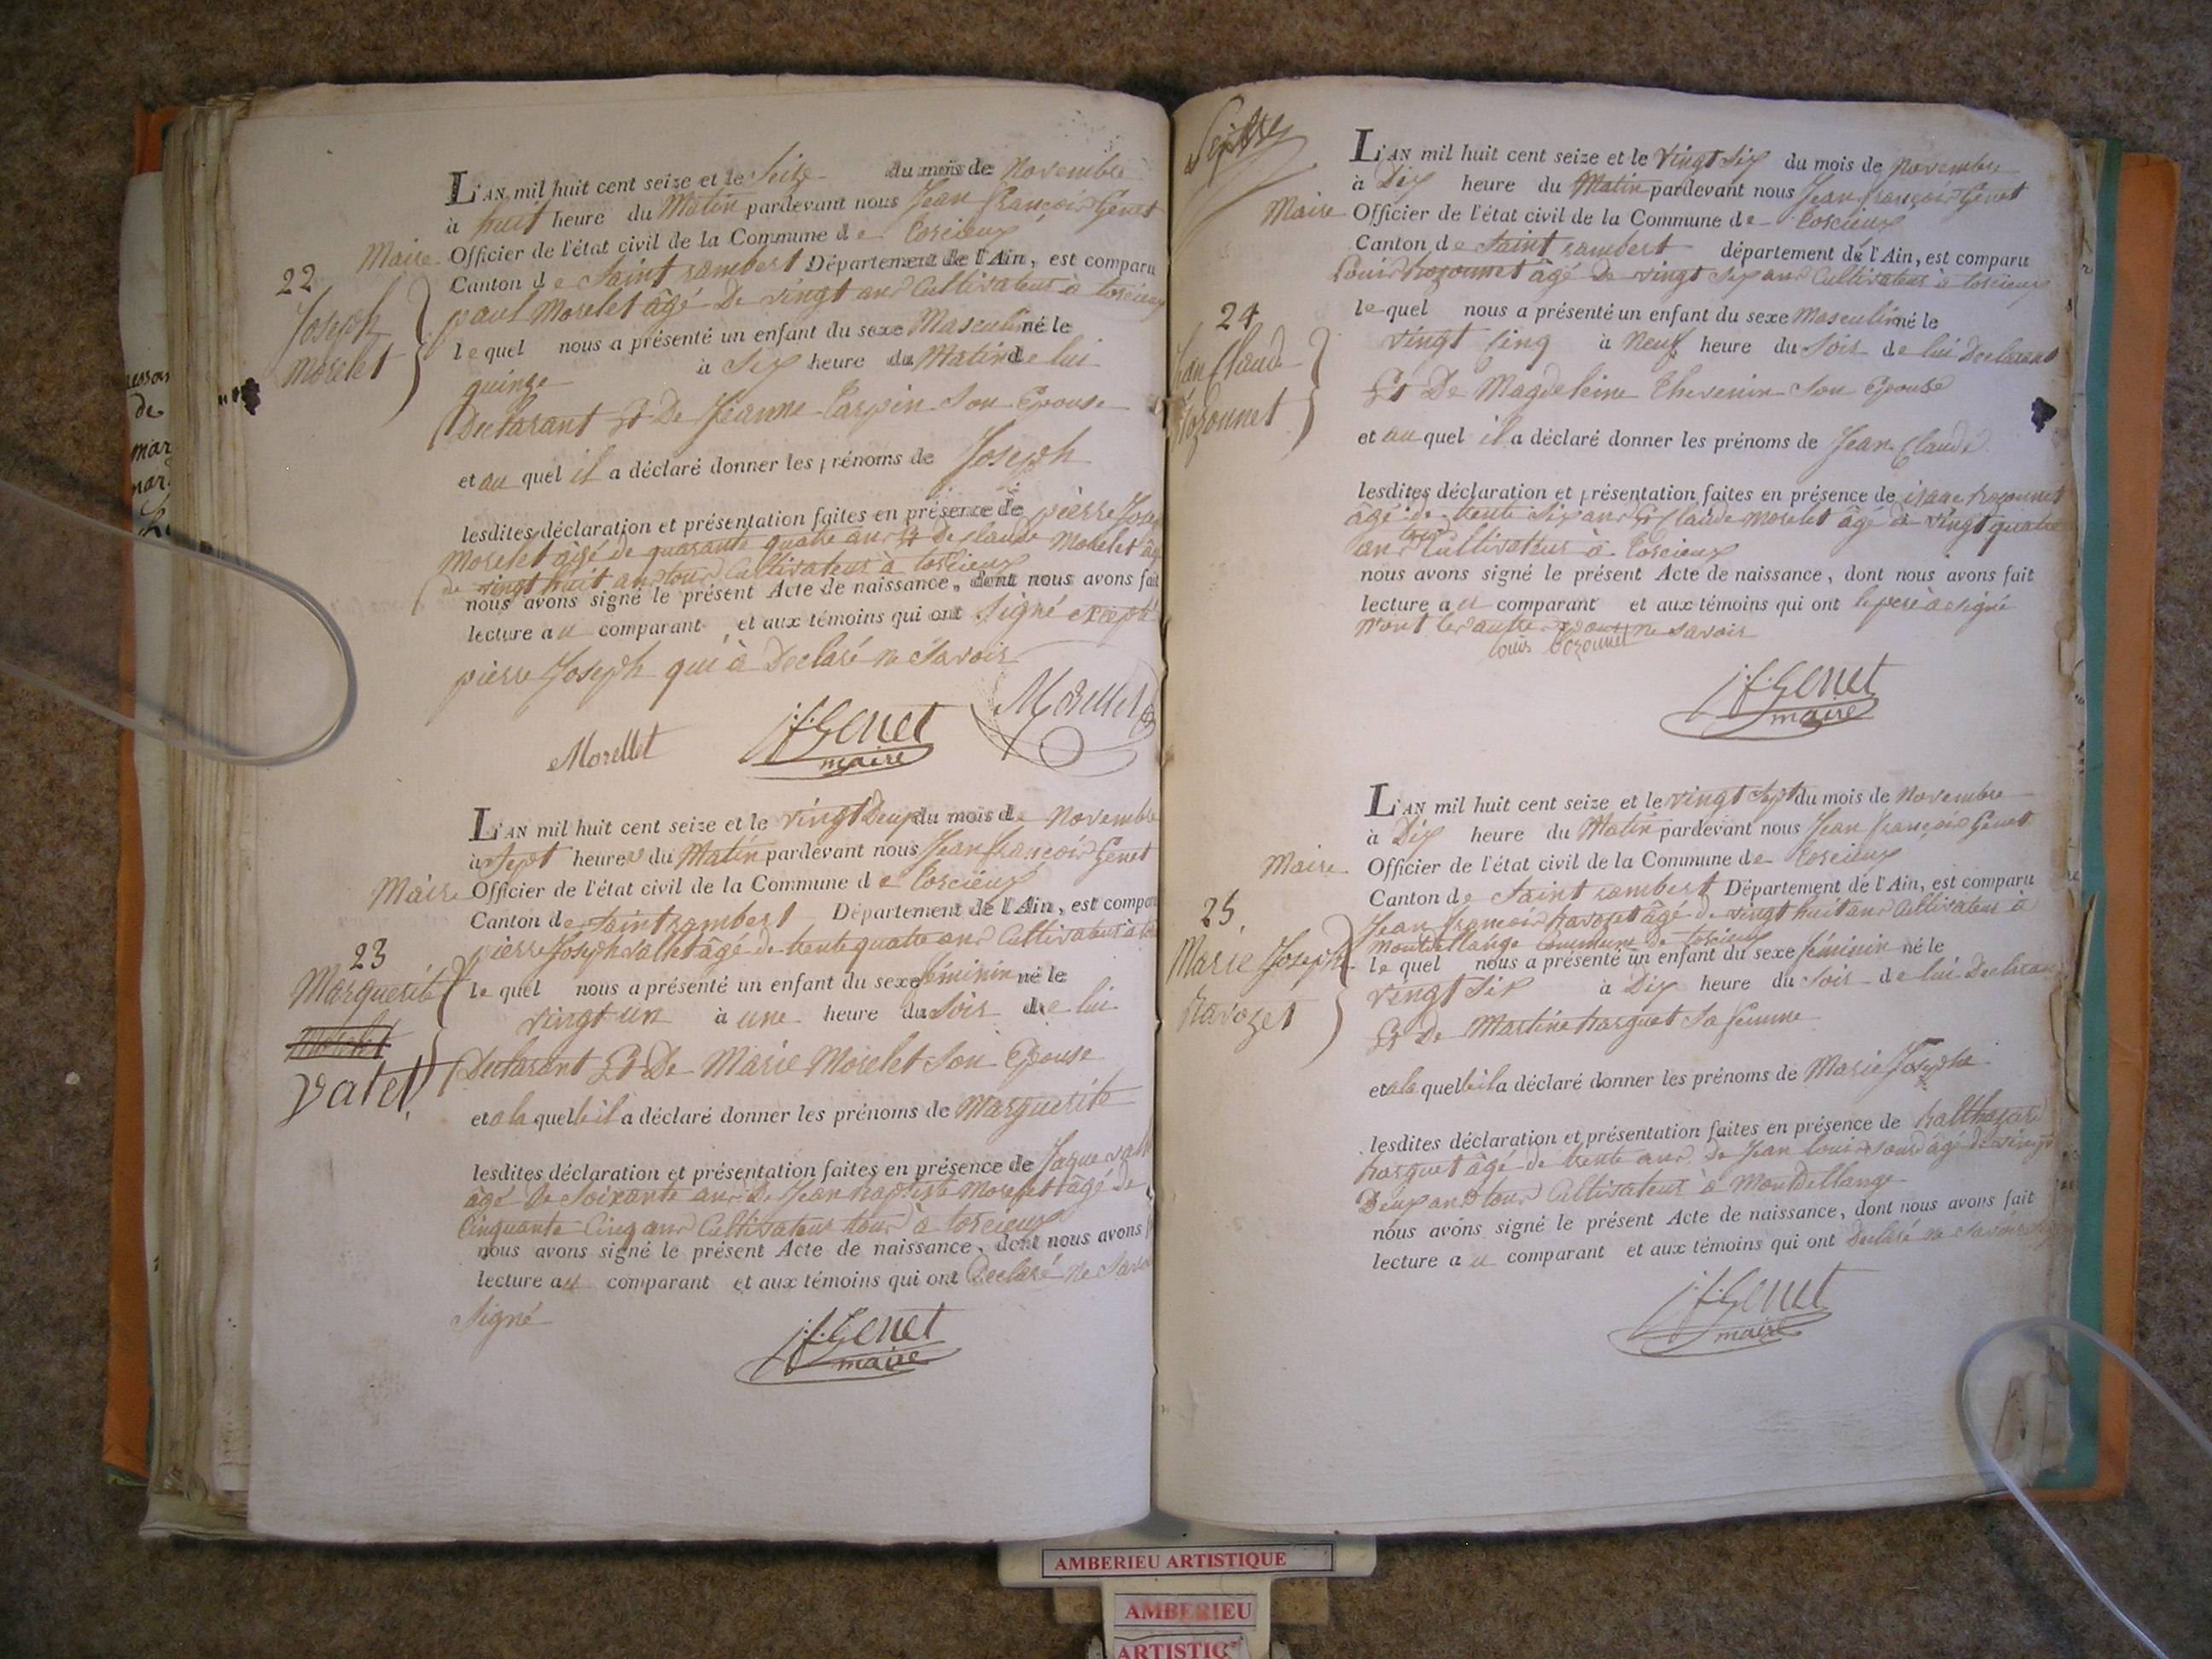 L'AN mil huit cent seize et le Seize du mois de Novembre
à huit heure du Matin pardevant nous Jean françois Genet
Maire Officier de l'état civil de la Commune de torcieux
Canton de Saint rambert Département de l'Ain, est comparu
paul Morelet âgé De vingt ans Cultivateur à torcieux
22
Joseph
Morelet
lequel nous a présenté un enfant du sexe Masculin né le
quinze à Six heure du Matin de lui
Declarant Et De Jeanne Carpin Son Epouse
et au quel il a déclaré donner les prénoms de Joseph
lesdites déclaration et présentation faites en présence de pièrre Josep
Morelet âgé de quarante quatre ans Et De Claude Morelet âg
de vingt huit ans tous Cultivateur à torcieux
nous avons signé le présent Acte de naissance, dont nous avons fait
lecture au comparant et aux témoins qui ont Signé excepté
pierre Joseph qui à Declaré ne Savoir
Morellet
j.f. Genet
maire
Morellet
L'AN mil huit cent seize et le vingt Deux du mois de Novembre
à Sept heures du Matin pardevant nous Jean françois Genet
Maire Officier de l'état civil de la Commune de torcieux
Canton de Saint rambert Département de l'Ain, est compar
pierre Joseph valet âgé de trente quatre ans Cultivateur à tor
23
Marguerite
Morelet
valet
le quel nous a présenté un enfant du sexe féminin né le
vingt un à une heure du Soir de lui
Declarant Et De Marie Morelet Son Epouse
et a la quelle il a déclaré donner les prénoms de Marguerite
lesdites déclaration et présentation faites en présence de Jaque vall
âgé De Soixante ans De Jean baptiste Morelet âgé de
Cinquante Cinq ans Cultivateur tous à torcieux
nous avons signé le présent Acte de naissance, dont nous avons f
lecture au comparant et aux témoins qui ont Declaré ne Savoi
Signé
j.f. Genet
maire
L'AN mil huit cent seize et le vingt Six du mois de Novembre
à Dix heure du Matin pardevant nous Jean françois Genet
Maire Officier de l'état civil de la Commune de torcieux
Canton de Saint rambert département de l'Ain, est comparu
Louis bozonnet âgé De vingt Six ans Cultivateur à torcieux
24
Jean Claude
bozonnet
le quel nous a présenté un enfant du sexe Masculin né le
vingt Cinq à Neuf heure du Soir de lui Declarant
Et De Magdeleine thevenin Son Epouse
et au quel il a déclaré donner les prénoms de Jean Claude
lesdites déclaration et présentation faites en présence de isaac bozonnet
âgé de trente Six ans Et Claude Morelet âgé de vingt quatre
ans tous Cultivateur à torcieux
nous avons signé le présent Acte de naissance, dont nous avons fait
lecture au comparant et aux témoins qui ont le pere à Signé
ne Savoir
louis bozonnet
j.f. Genet
maire
L'AN mil huit cent seize et le vingt Sept du mois de Novembre
à Dix heure du Matin pardevant nous Jean françois Genet
Maire Officier de l'état civil de la Commune de torcieux
Canton de Saint rambert Département de l'Ain, est comparu
Jean françois ravozet âgé de vingt huit ans Cultivateur à
Montdellange Commune de torcieux
25
Marie Joseph
ravozet
le quel nous a présenté un enfant du sexe féminin né le
vingt Six à Dix heure du Soir de lui Declaran
Et De Martine barquet Sa femme
et a la quelle il a déclaré donner les prénoms de Marie Josephe
lesdites déclaration et présentation faites en présence de balthazard
barquet âgé de trente ans De Jean louis Sour âgé de vingt
Deux ans tous Cultivateur à Montdellange
nous avons signé le présent Acte de naissance, dont nous avons fait
lecture au comparant et aux témoins qui ont Declaré ne Savoir
j.f. Genet
maire
AMBERIEU ARTISTIQUE
AMBERIEU
ARTISTIQ